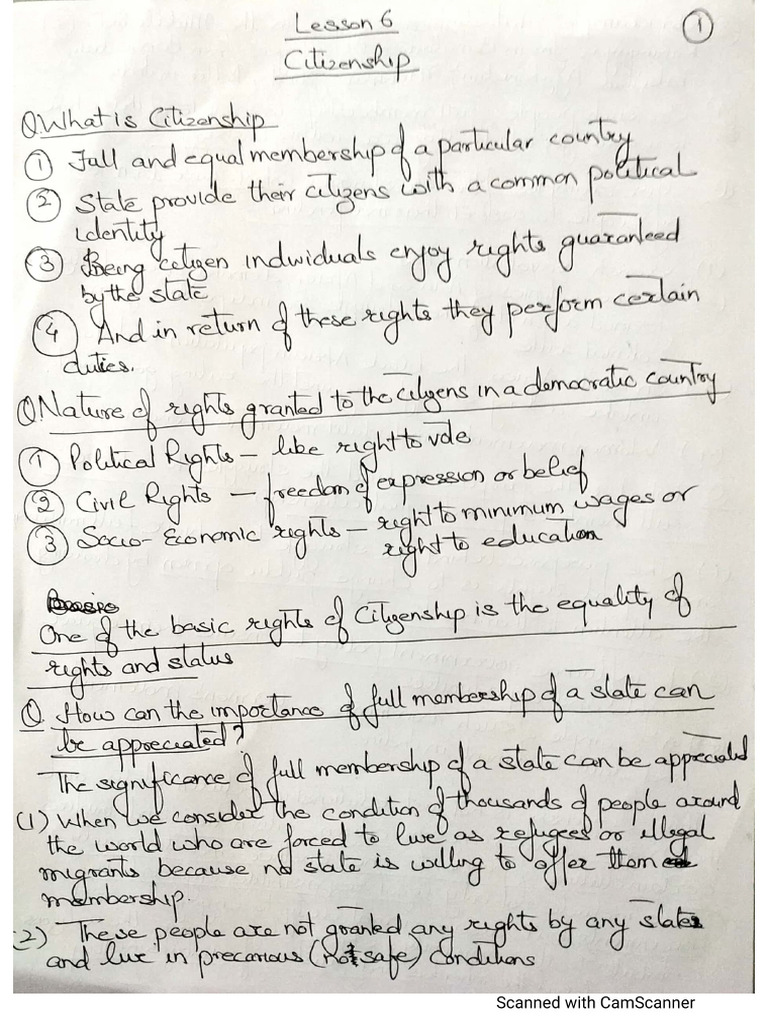 Lesson 6
1
Citizenship
Q What is Citizenship
1 Full and equal membership of a particular country
2 State provide their citizens with a common political
identity
3 Being citizen individuals enjoy rights guaranteed
by the state
4 And in return of these rights they perform certain
duties.
Q Nature of rights granted to the citizens in a democratic country
1 Political Rights – like right to vote
2 Civil Rights – freedom of expression or belief
3 Socio-Economic rights – right to minimum wages or
right to education
One of the basic rights of Citizenship is the equality of
rights and status
Q. How can the importance of full membership of a state can
be appreciated?
The significance of full membership of a state can be appreciated
(1) When we consider the condition of thousands of people around
the world who are forced to live as refugees or illegal
migrants because no state is willing to offer them
membership.
2) These people are not granted any rights by any state
and live in precarious (Not safe) conditions
Scanned with CamScanner